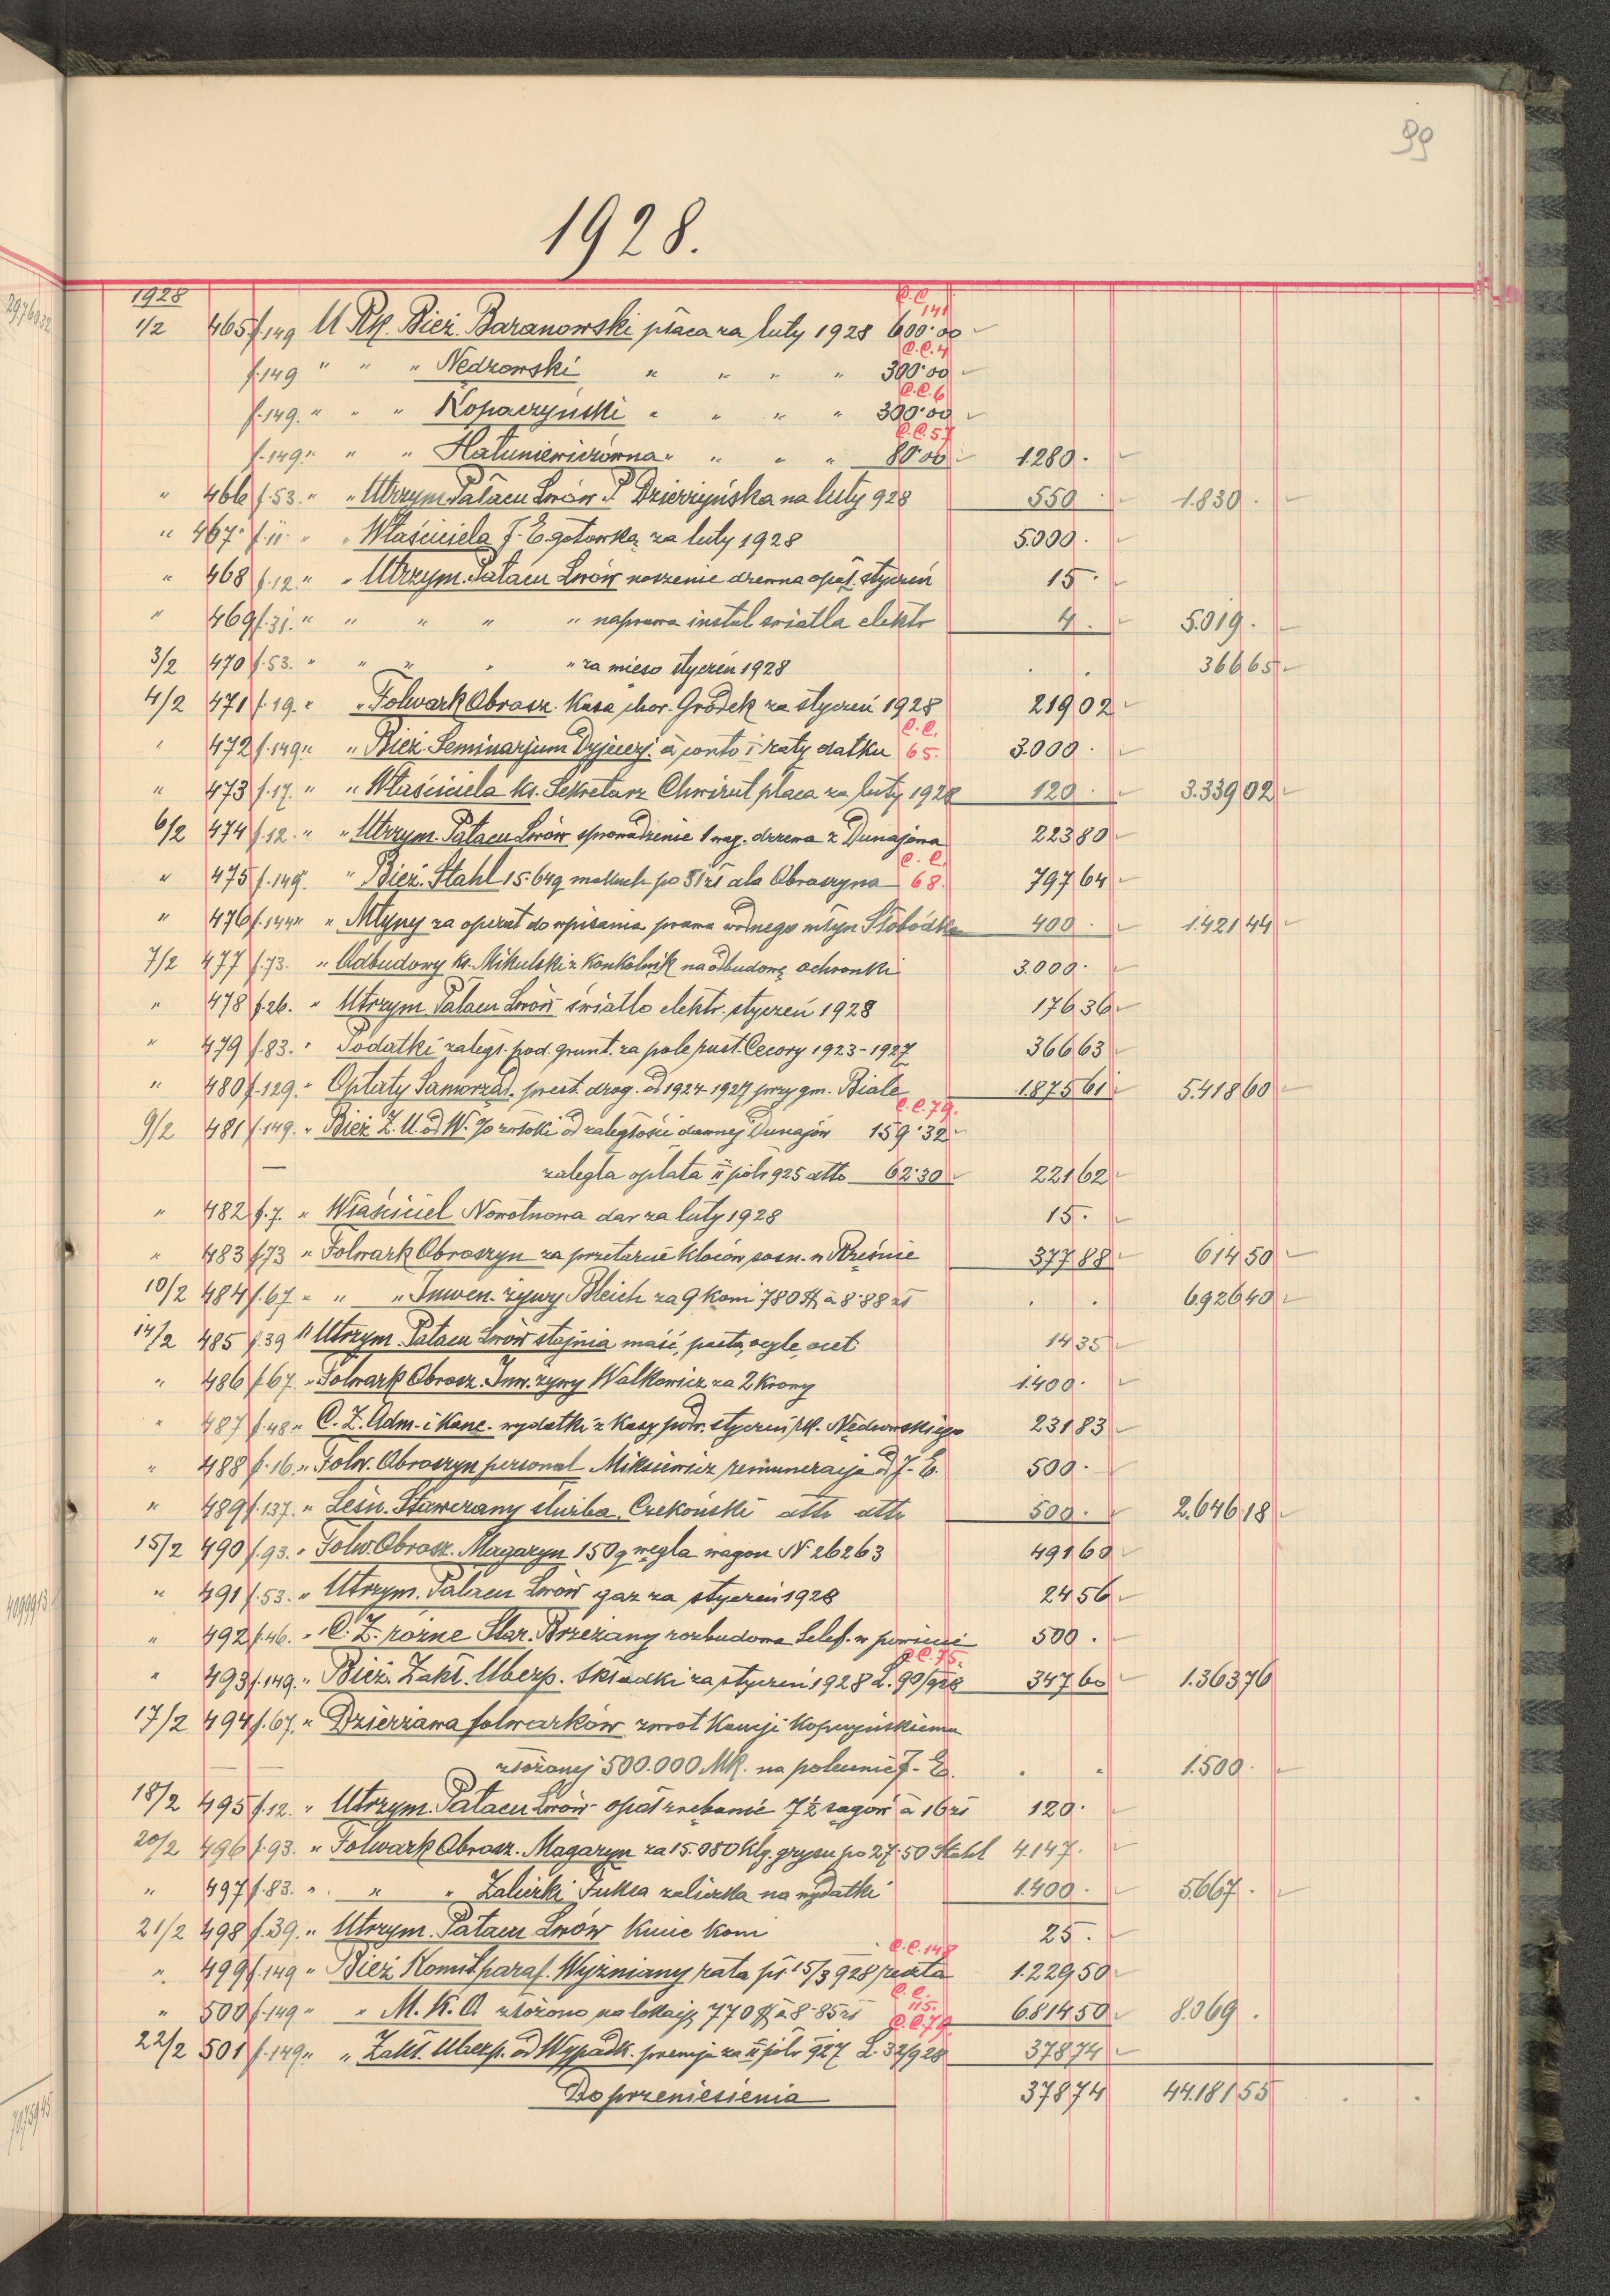 99
1928.
1928
1/2 465 f.149 U Rk. Bież. Baranowski płaca za luty 1928 C.C. 141 600·00
f.149 " " " Nędzowski " " " " C.C.4 300·00
f.149. " " " Kopaczyński " " " " C.C.6 300·00
f.149. " " " Hatuniewiczówna " " " " C.C.57 80·00 1.280.
" 466 f.53. " " Utrzym. Pałacu Lwów P. Dzierżyńska na luty 928 550 . 1.830.
" 467. f.11. " " Właściciela J. E. gotówką za luty 1928 5.000.
" 468 f.12. " " Utrzym. Pałacu Lwów noszenie drzewa opał. styczeń 15.
" 469 f.31. " " " " " naprawa instal światła elektr 4. 5.019.
3/2 470 f.53. " " " " " za mięso styczeń 1928 . . 366 65
4/2 471 f.19. " " Folwark Obrosz. Kasa chor. Gródek za styczeń 1928 219 02
" 472 f.149 " " Bież. Seminarjum Dyjecezj. à conto I raty datku C.C. 65. 3.000.
" 473 f.17. " " Właściciela ks. Sekretarz Chwirut płaca za luty 1928 120. 3.339 02
6/2 474 f.12. " " Utrzym. Pałacu Lwów sprowadzenie 1 wag. drzewa z Dunajowa 223 80
" 475 f.149. " Bież. Stahl 15.64q makuch po 51 zł dla Obroszyna C.C. 68. 797 64
" 476 f.144 " " Młyny za operat do wpisania prawa wodnego młyn Słobódka 400. 1.421 44
7/2 477 f.73. " Odbudowy ks. Mikulski z Konkolnik na odbudowę ochronki 3.000.
" 478 f.26. " Utrzym. Pałacu Lwów światło elektr. styczeń 1928 176 36
" 479 f.83. " Podatki zaległ. pod. grunt. za pole pust. Cecory 1923-1927 366 63
" 480 f.129. " Opłaty Samorząd. prest. drog. od 1924-1927 przy gm. Białe 1.875 61 5.418 60
9/2 481 f.149. " Bież Z. U. od W. % zwłoki od zaległości dawnej Dunajów C.C.79. 159·32
— zaległa opłata II półr 925 dtto 62·30 221 62
" 482 f.7. " Właściciel Nowotnowa dar za luty 1928 15.
" 483 f.73 " Folwark Obroszyn za przetarcie kloców sosn. w Rześnie 377 88 614 50
10/2 484 f.67 " " " Inwen. żywy Bleich za 9 koni 780 $ à 8·88 zł . . 6.926 40
14/2 485 f.39 " Utrzym. Pałacu Lwów stajnia maść, pasta, ocet 14 35
" 486 f.67. " Folwark Obrosz. Inw. żywy Walkowicz za 2 krowy 1.400.
" 487 f.48 " C. Z. Adm. i Kanc. wydatki z kasy podr. styczeń rk. Nędzowskiego 231 83
" 488 f.16. " Folw. Obroszyn personal Miksiewicz remuneracja od J. E. 500.
" 489 f.137. " Leśn. Stawczany służba Czekoński dtto dtto 500. 2.646 18
15/2 490 f.93. " Folw Obrosz. Magazyn 150 q węgla wagon N 26263 491 60
" 491 f.53. " Utrzym. Pałacu Lwów gaz za styczeń 1928 24 56
" 492 f.46. " C. Z. różne Star. Brzeżany rozbudowa telef. w powiecie 500.
" 493 f.149. " Bież. Zakł. Ubezp. składki za styczeń 1928 L. 90/928 C.C.75. 347 60 1.363 76
17/2 494 f.67. " Dzierżawa folwarków zwrot kaucji Kopczyńskiemu
złożonej 500.000 Mk. na polecenie J. E. . . 1.500.
18/2 495 f.12. " Utrzym. Pałacu Lwów opał zrębanie 7½ sągów à 16 zł 120.
20/2 496 f.93. " Folwark Obrosz. Magazyn za 15.080 klg. grysu po 27·50 Stahl 4.147.
" 497 f.83. " " " Zaliczki Fuksa zaliczka na wydatki 1.400. 5.667.
21/2 498 f.39. " Utrzym. Pałacu Lwów kucie koni 25.
" 499 f.149 " Bież Komit. paraf. Wyżniany rata pł 15/3 928 reszta C.C.148 1.229 50
" 500 f.149 " " M. K. O. złożono na lokację 770 $ à 8·85 zł C.C. 115. 6.814 50 8.069.
22/2 501 f.149 " " Zakł. Ubezp. od Wypadk. premja za II półr 927 L. 32/928 C.C.79. 378 74
Do przeniesienia 378 74 44.181 55 . .